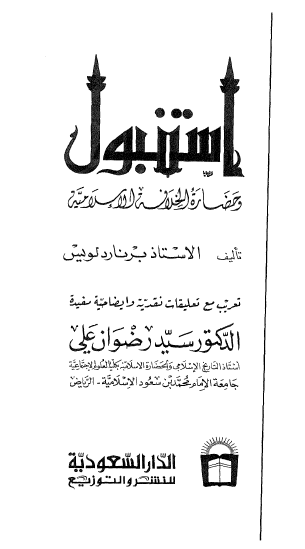 إستنبول
وحضارة الخلافة الإسلامية
تأليف الاستاذ برنارد لويس
تعريب مع تعليقات نقدية وايضاحية مفيدة
الدكتور سيد رضوان علي
استاذ التاريخ الإسلامي والحضارة الاسلامية بكلية العلوم الاجتماعية
جامعة الإمام محمد بن سعود الإسلامية - الرياض
الدار السعودية
للنشر والتوزيع